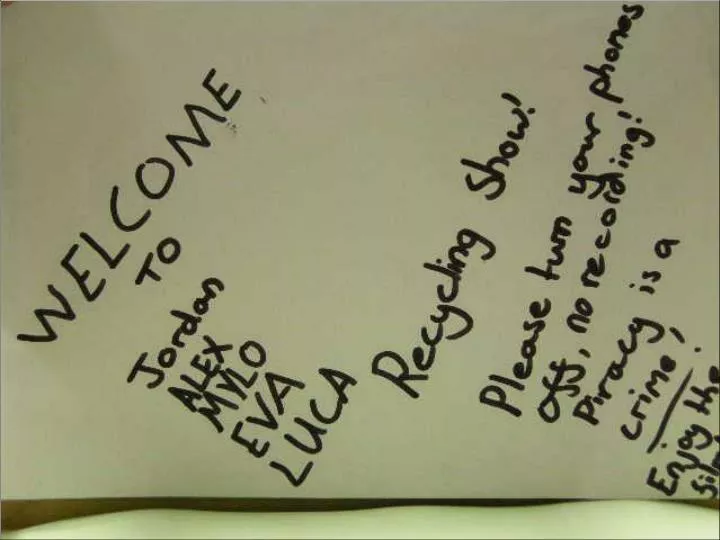 WELCOME
TO
Jordan
ALEX
MYLO
EVA
LUCA
Recycling Show!
Please turn your phones
off, no recording!
Piracy is a
crime,
Enjoy the